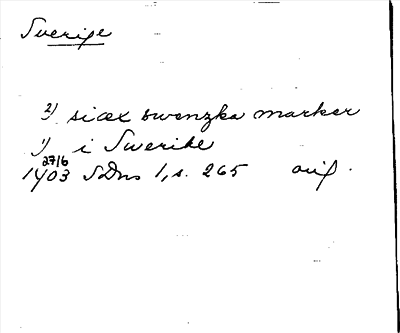 Sverige
2) siæx swenzka marker
1) i Swerike
27/6
1403 SDns 1, s. 265 orig.